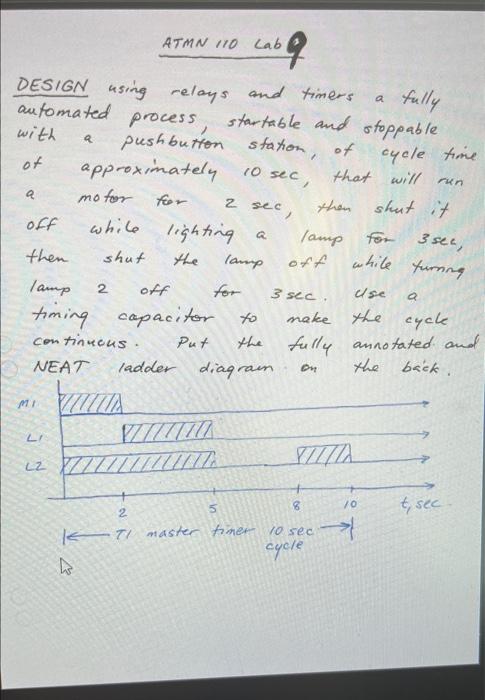 ATMN 110 Lab 9
DESIGN using relays and timers a fully
automated process, startable and stoppable
with a pushbutton station, of cycle time
of approximately 10 sec, that will run
a motor for 2 sec, then shut it
off while lighting a lamp for 3 sec,
then shut the lamp off while turning
lamp 2 off for 3 sec. Use a
timing capacitor to make the cycle
continuous. Put the fully annotated and
NEAT ladder diagram on the back.
M1
L1
L2
2 5 8 10 t, sec.
T1 master timer 10 sec
cycle